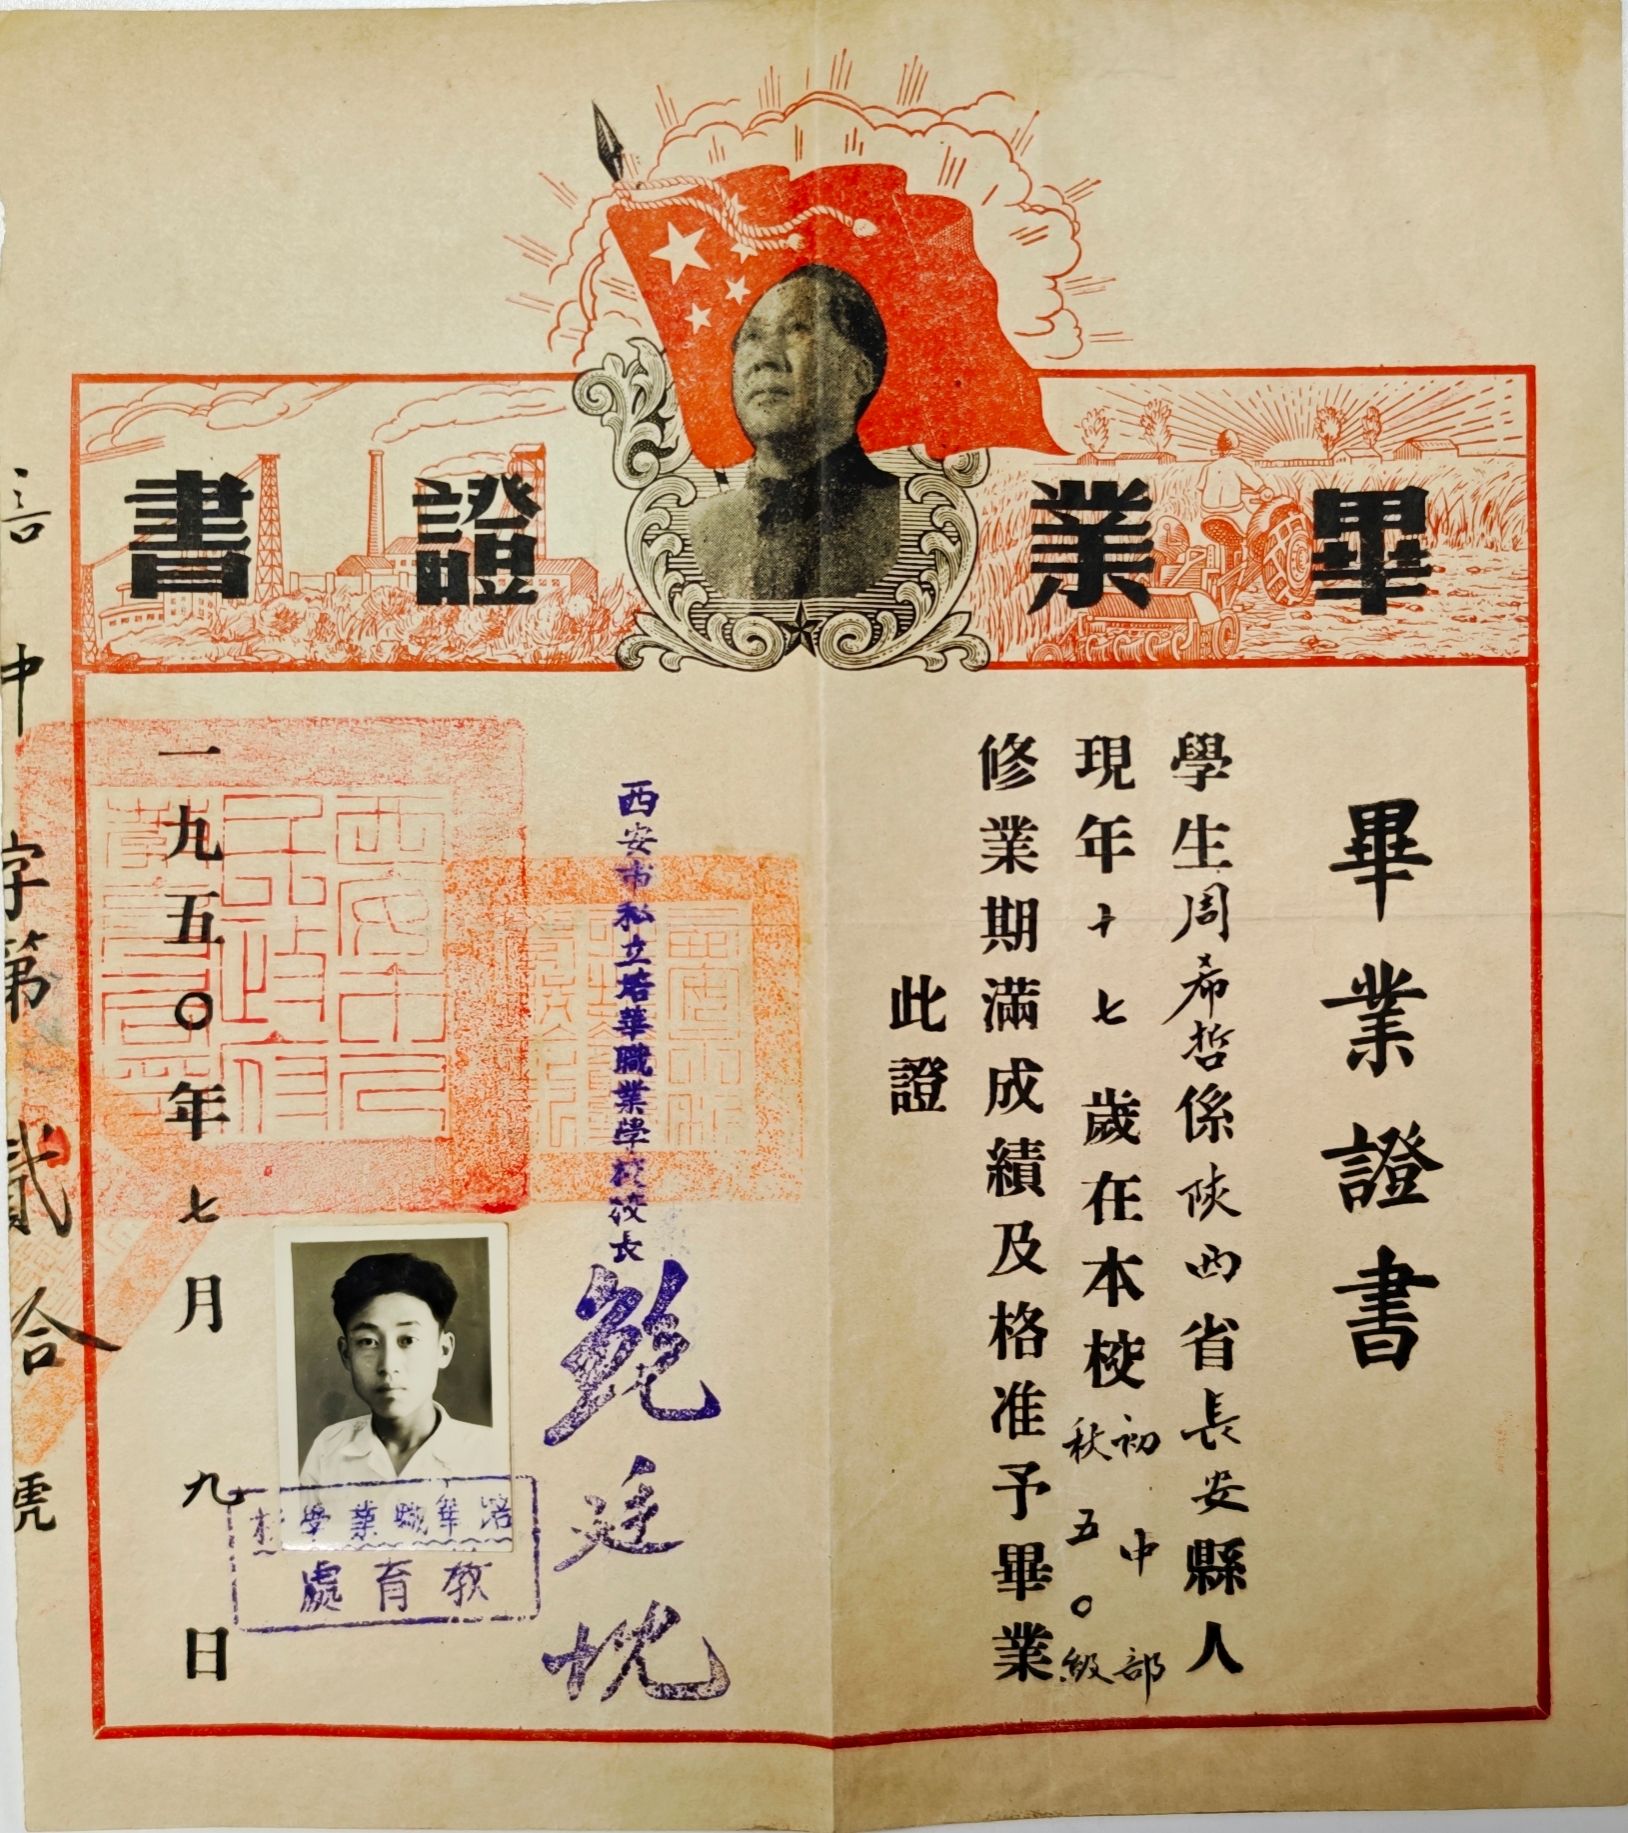 畢業證書
畢業證書
學生周希哲係陝西省長安縣人
現年十七歲在本校初中部秋五〇級
修業期滿成績及格准予畢業
此證
西安市私立培華職業學校校長
廷
一九五〇年七月九日
培華職業學校
教育處
中字第貳拾號